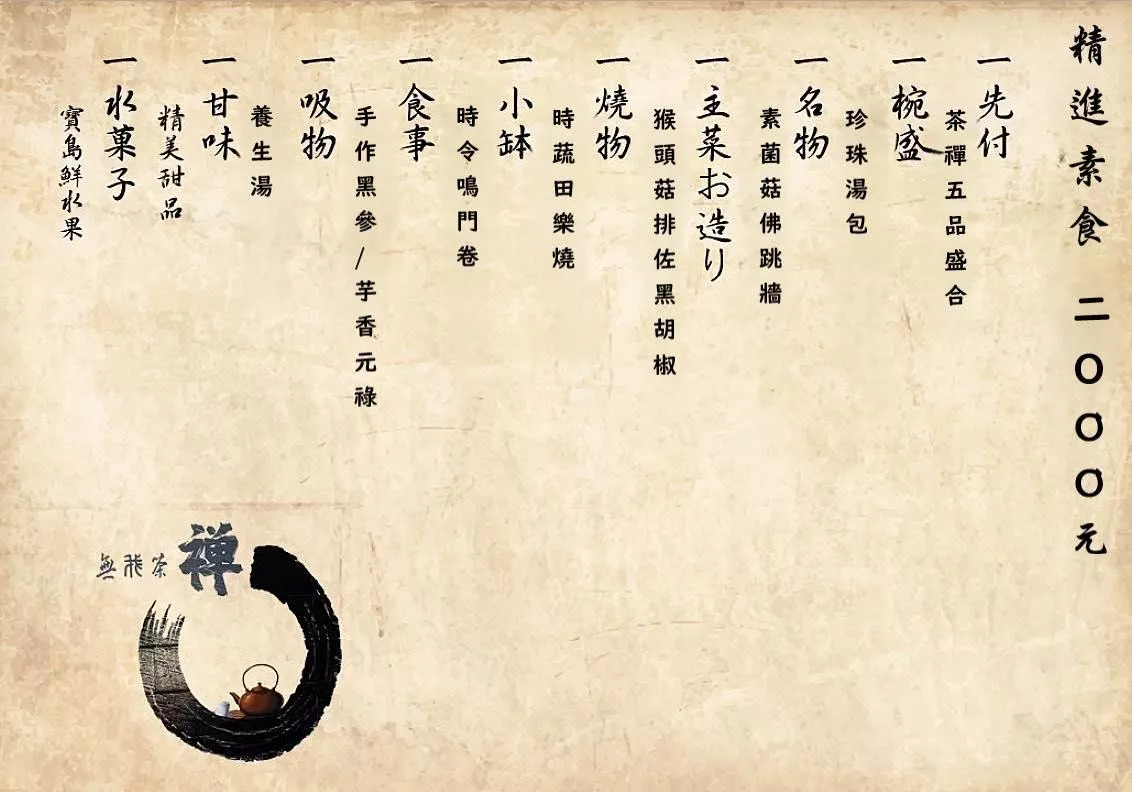 精進素食 二〇〇〇元
一先付
茶禪五品盛合
一椀盛
珍珠湯包
一名物
素菌菇佛跳牆
一主菜お造り
猴頭菇排佐黑胡椒
一燒物
時蔬田樂燒
一小缽
時令鳴門卷
一食事
手作黑參/芋香元祿
一吸物
養生湯
一甘味
精美甜品
一水菓子
寶島鮮水果
禪
茶非無